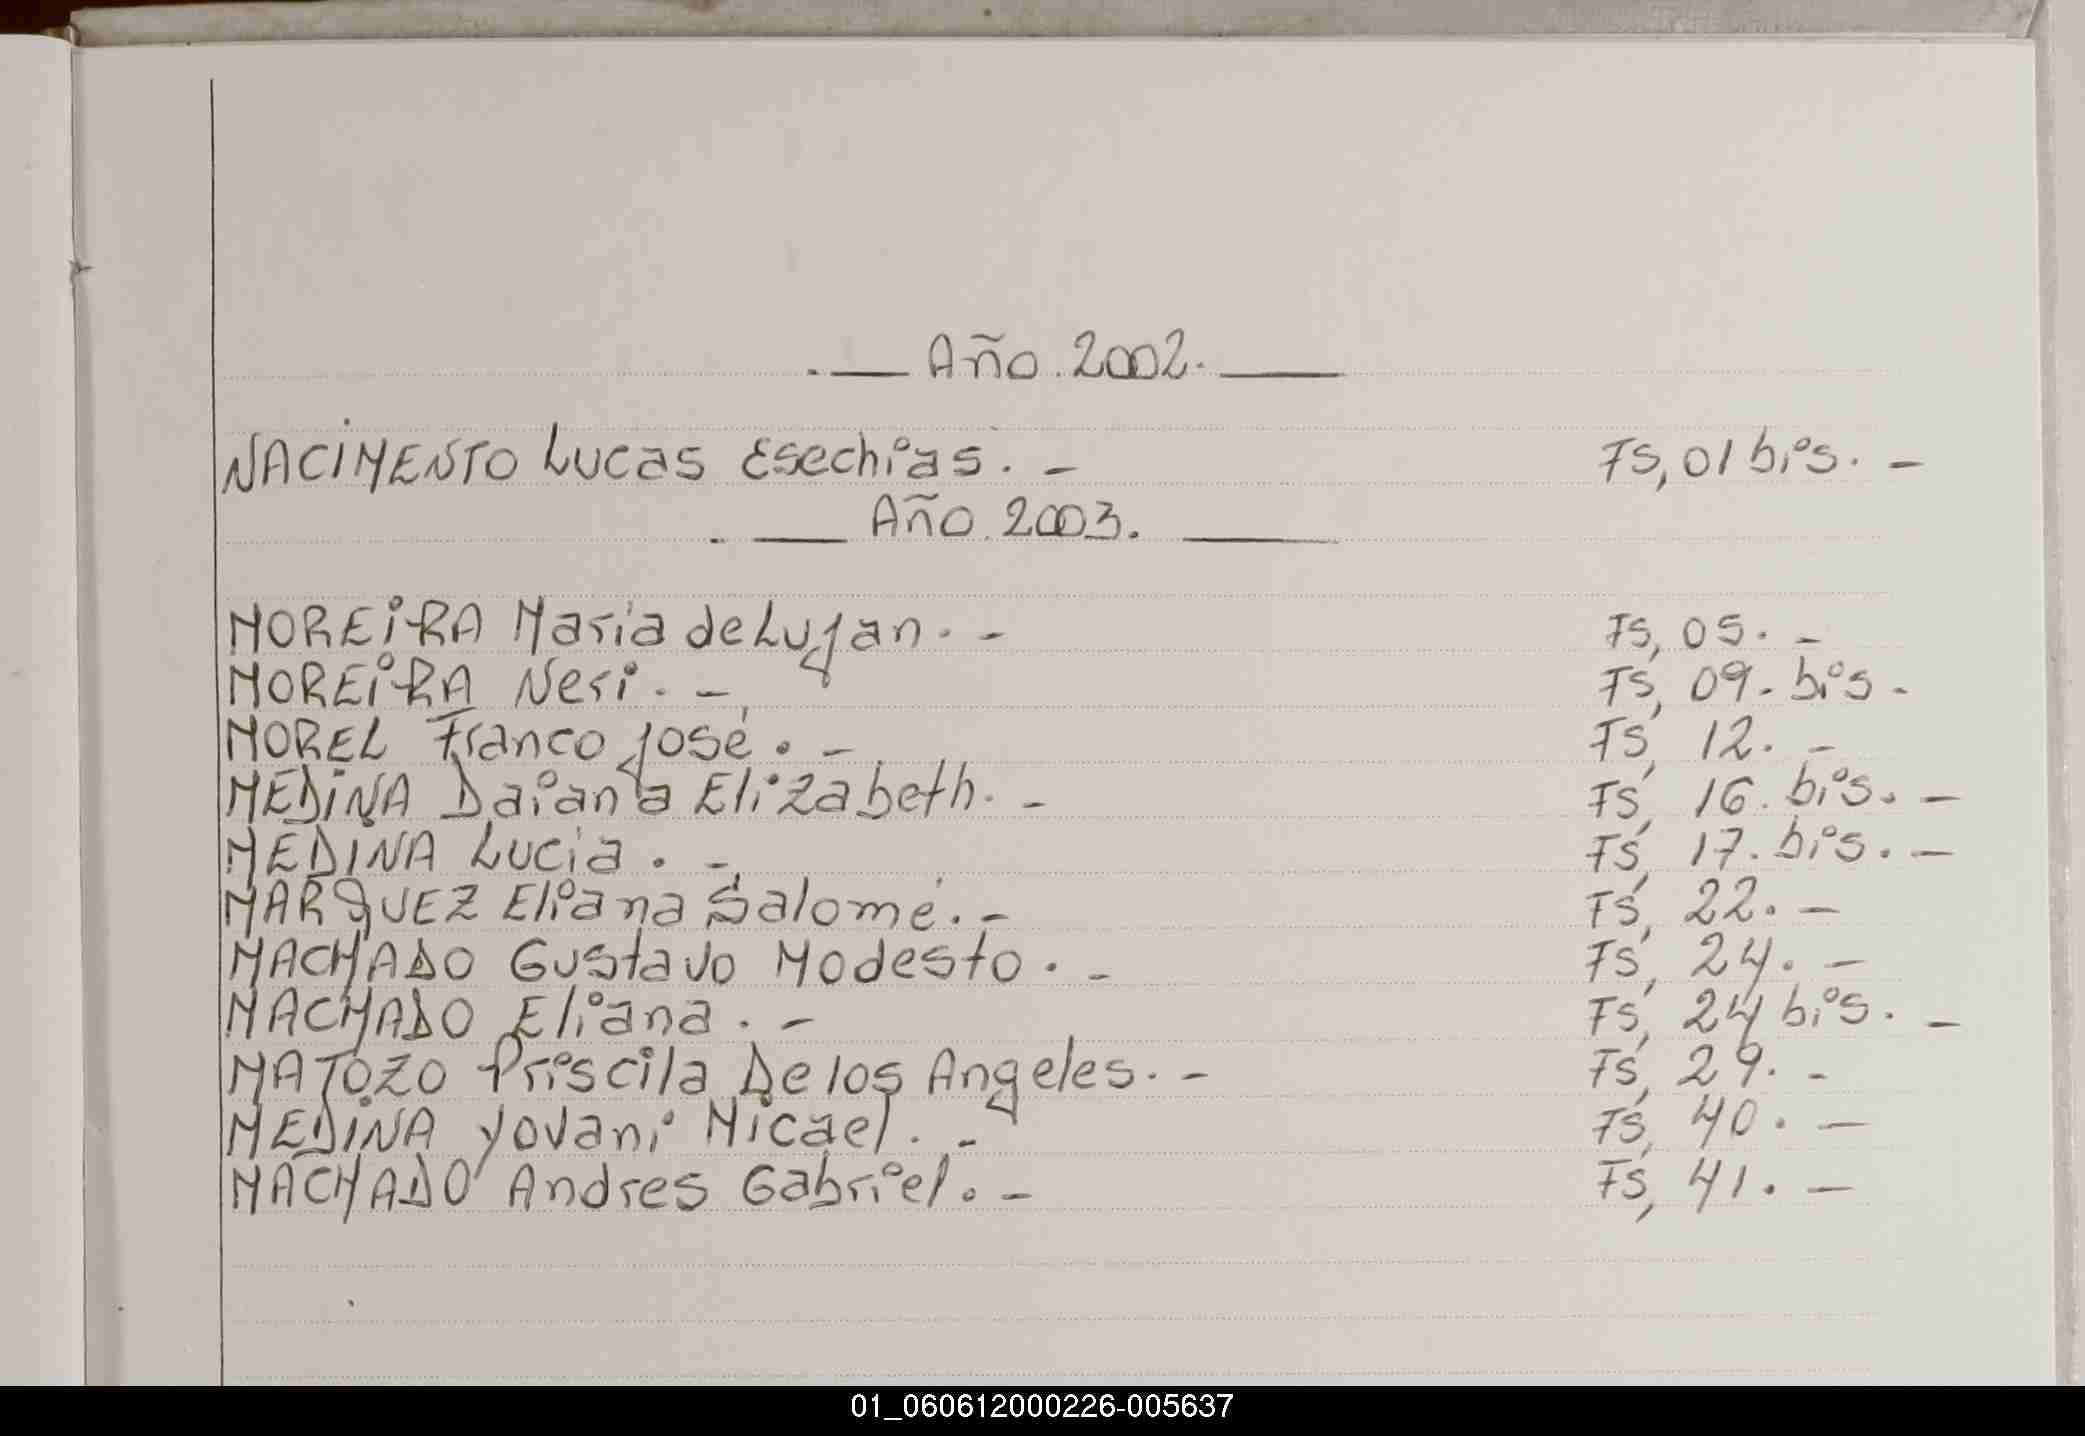 .— Año. 2002. —
NACIMENTO Lucas Esechias. - FS, 01 bis. -
. — Año. 2003. —
MOREIRA Maria de Lujan. - FS, 05. -
MOREIRA Neri. - FS, 09. bis.
MOREL Franco José. - FS, 12. -
MEDINA Daiana Elizabeth. - FS, 16. bis. -
MEDINA Lucia. - FS, 17. bis. -
MARQUEZ Eliana Salomé. - FS, 22. -
MACHADO Gustavo Modesto. - FS, 24. -
MACHADO Eliana. - FS, 24 bis. -
MATOZO Priscila De los Angeles. - FS, 29. -
MEDINA Yovani Micael. - FS, 40. -
MACHADO Andres Gabriel. - FS, 41. -
01_060612000226-005637